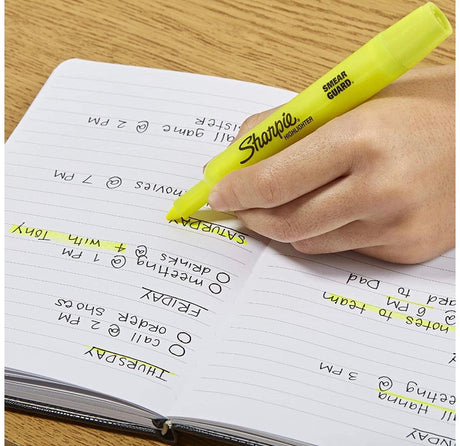 Sharpie®
HIGHLIGHTER
SMEAR
GUARD
THURSDAY
call @ 2 PM
order shoes
FRIDAY
meeting @ 1 PM
drinks @ 4 with Tony
SATURDAY
movies @ 7 PM
game @ 2 PM
Hanna
@ 3 PM
notes to team
@ 6 PM
to Dad